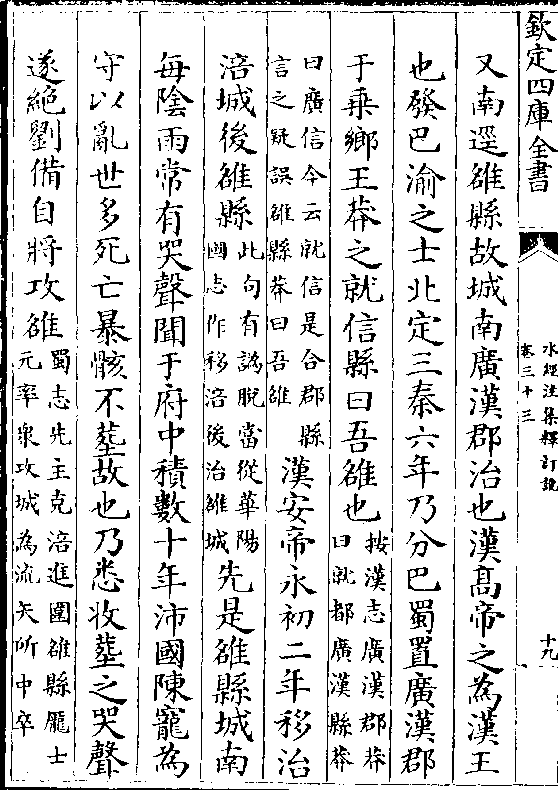 欽定四庫全書
水經注集釋訂訛
卷三十三
十九
又南逕雒縣故城南廣漢郡治也漢高帝之為漢王
也發巴渝之士北定三秦六年乃分巴蜀置廣漢郡
于乗鄉王莽之就信縣曰吾雒也按漢志廣漢郡莽
曰就都廣漢縣莽
曰廣信今云就信是合郡縣
言之疑誤雒縣莽曰吾雒漢安帝永初二年移治
涪城後雒縣此句有譌脫當從華陽
國志作移涪後治雒城先是雒縣城南
每陰雨常有哭聲聞于府中積數十年沛國陳寵為
守以亂世多死亡暴骸不塟故也乃悉收塟之哭聲
遂絶劉備自將攻雒蜀志先主克涪進圍雒縣龎士
元率衆攻城為流矢所中卒